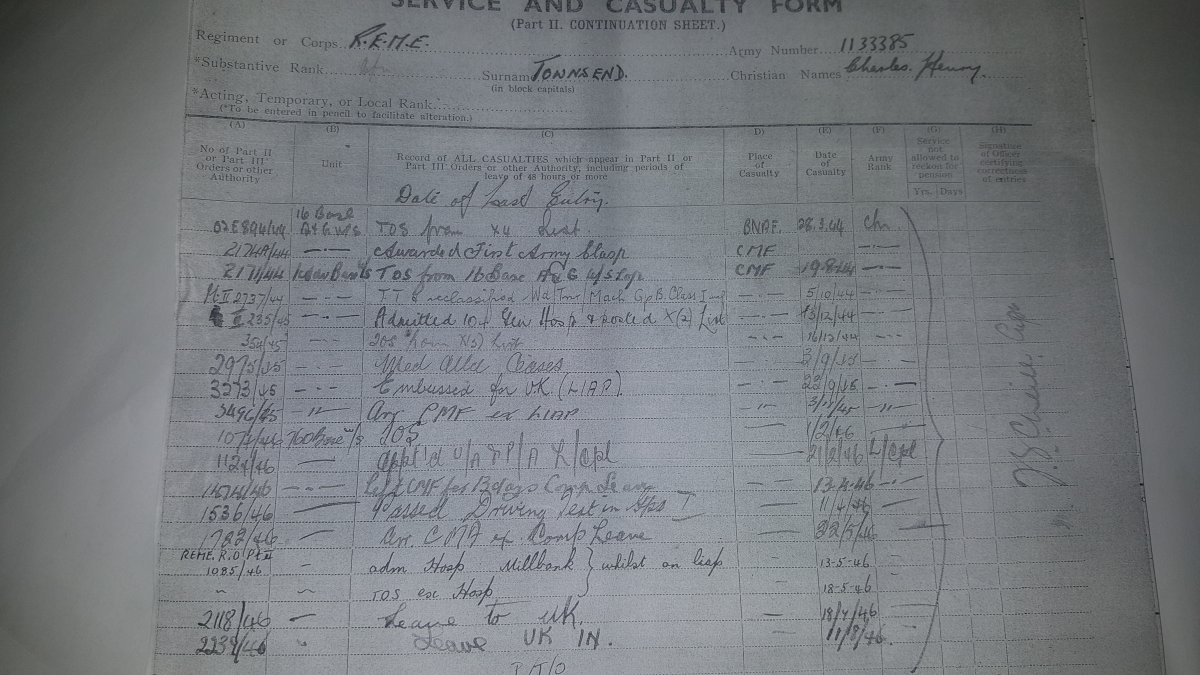 SERVICE AND CASUALTY FORM
(Part II. CONTINUATION SHEET.)
Regiment or Corps R.E.M.E. Army Number 1133385
*Substantive Rank Surname TOWNSEND. Christian Names Charles. Henry.
(in block capitals)
*Acting, Temporary, or Local Rank
(*To be entered in pencil to facilitate alteration.)
(A) (B) (C) D) (E) (F) (G) (H)
No of Part II or Part III Orders or other Authority
Unit
Record of ALL CASUALTIES which appear in Part II or Part III Orders or other Authority, including periods of leave of 48 hours or more
Place of Casualty
Date of Casualty
Army Rank
Service not allowed to reckon for pension
Yrs. Days
Signature of Officer certifying correctness of entries
Date of Last Entry.
16 Base
TOS from X4 List. BNAF. 28.3.44 Cfn
/44 Awarded First Army Clasp CMF
2171/44 TOS from 16 Base CMF 19-8-44
Pt II 2737/44 TT & reclassified Gp B. Class I 5/10/44
II 235/45 Admitted 104 Gen Hosp & posted X(2) List 13/12/44
354/45 List 16/12/44
2975/45 Med Ceases 2/9/45
3273/45 Embussed for UK (LIAP) 22/9/45
3496/45 Arr CMF ex LIAP
1074/46 760 Base TOS 1/2/46
1124/46 app't'd U/A & P/A L/Cpl 21/2/46 L/Cpl
Left CMF for 13 days Comp Leave 13-4-46
1536/46 Passed Driving Test in Gps I 11/4/46
Arr. CMF ex Comp Leave 22/5/46
REME. R.O Pt II
1085/46 adm Hosp Millbank } whilst on liap 13-5-46
TOS ex Hosp 18-5-46
2118/46 Leave to UK. 18/7/46
2239/46 Leave UK IN. 11/8/46
P/T/O